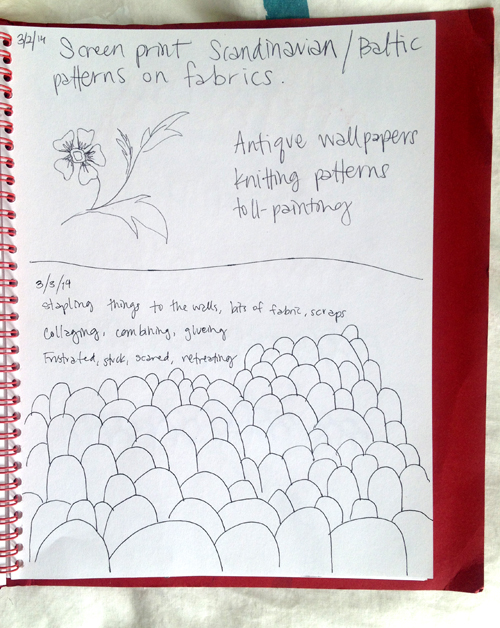 3/2/14
Screen print Scandinavian/Baltic
patterns on fabrics.
Antique wallpapers
knitting patterns
toll-painting
3/3/14
stapling things to the walls, bits of fabric, scraps
collaging, combining, glueing
Frustrated, stuck, scared, retreating